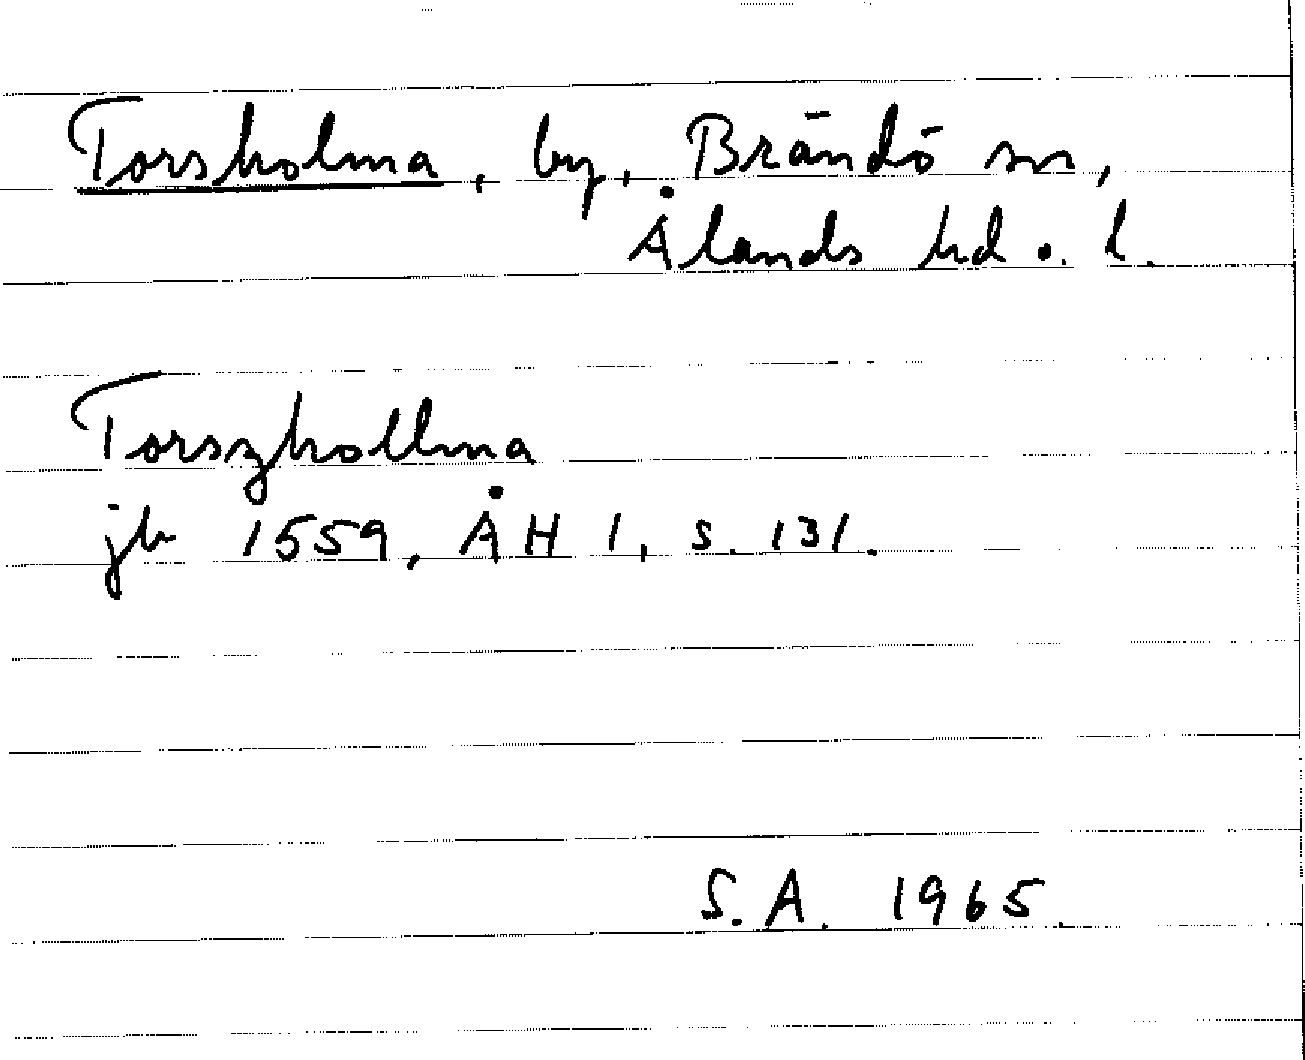 Torsholma, by, Brändö sn,
Ålands hd o. l.
Torszhollma
jb 1559, ÅH 1, s. 131.
S.A. 1965.